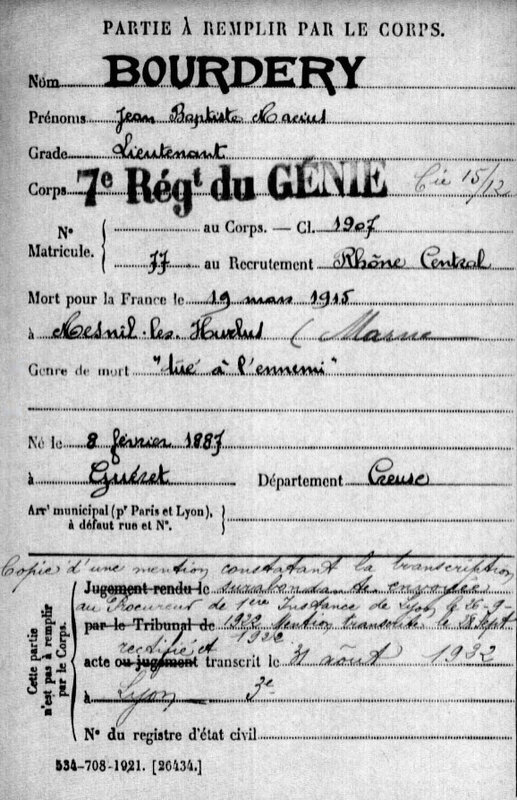 PARTIE À REMPLIR PAR LE CORPS.
Nom BOURDERY
Prénoms Jean Baptiste Marius
Grade Lieutenant
Corps 7e Régt du GÉNIE Cie 15/12
No Matricule. { au Corps. — Cl. 1907
77 au Recrutement Rhône Central
Mort pour la France le 19 mars 1915
à Mesnil-les-Hurlus (Marne
Genre de mort "tué à l'ennemi"
Né le 8 février 1887
à Guéret Département Creuse
Arrt municipal (pr Paris et Lyon),
à défaut rue et No.
Copie d'une mention constatant la transcription
Jugement rendu le surabondante envoyée
au Procureur de 1ère Instance de Lyon le 26-9-
par le Tribunal de 1922 Mention transcrite le 28 Sept
1922
rectifié et
acte ou jugement transcrit le 31 août 1922
à Lyon 3e
No du registre d'état civil
Cette partie
n'est pas à remplir
par le Corps.
534-708-1921. [26434.]